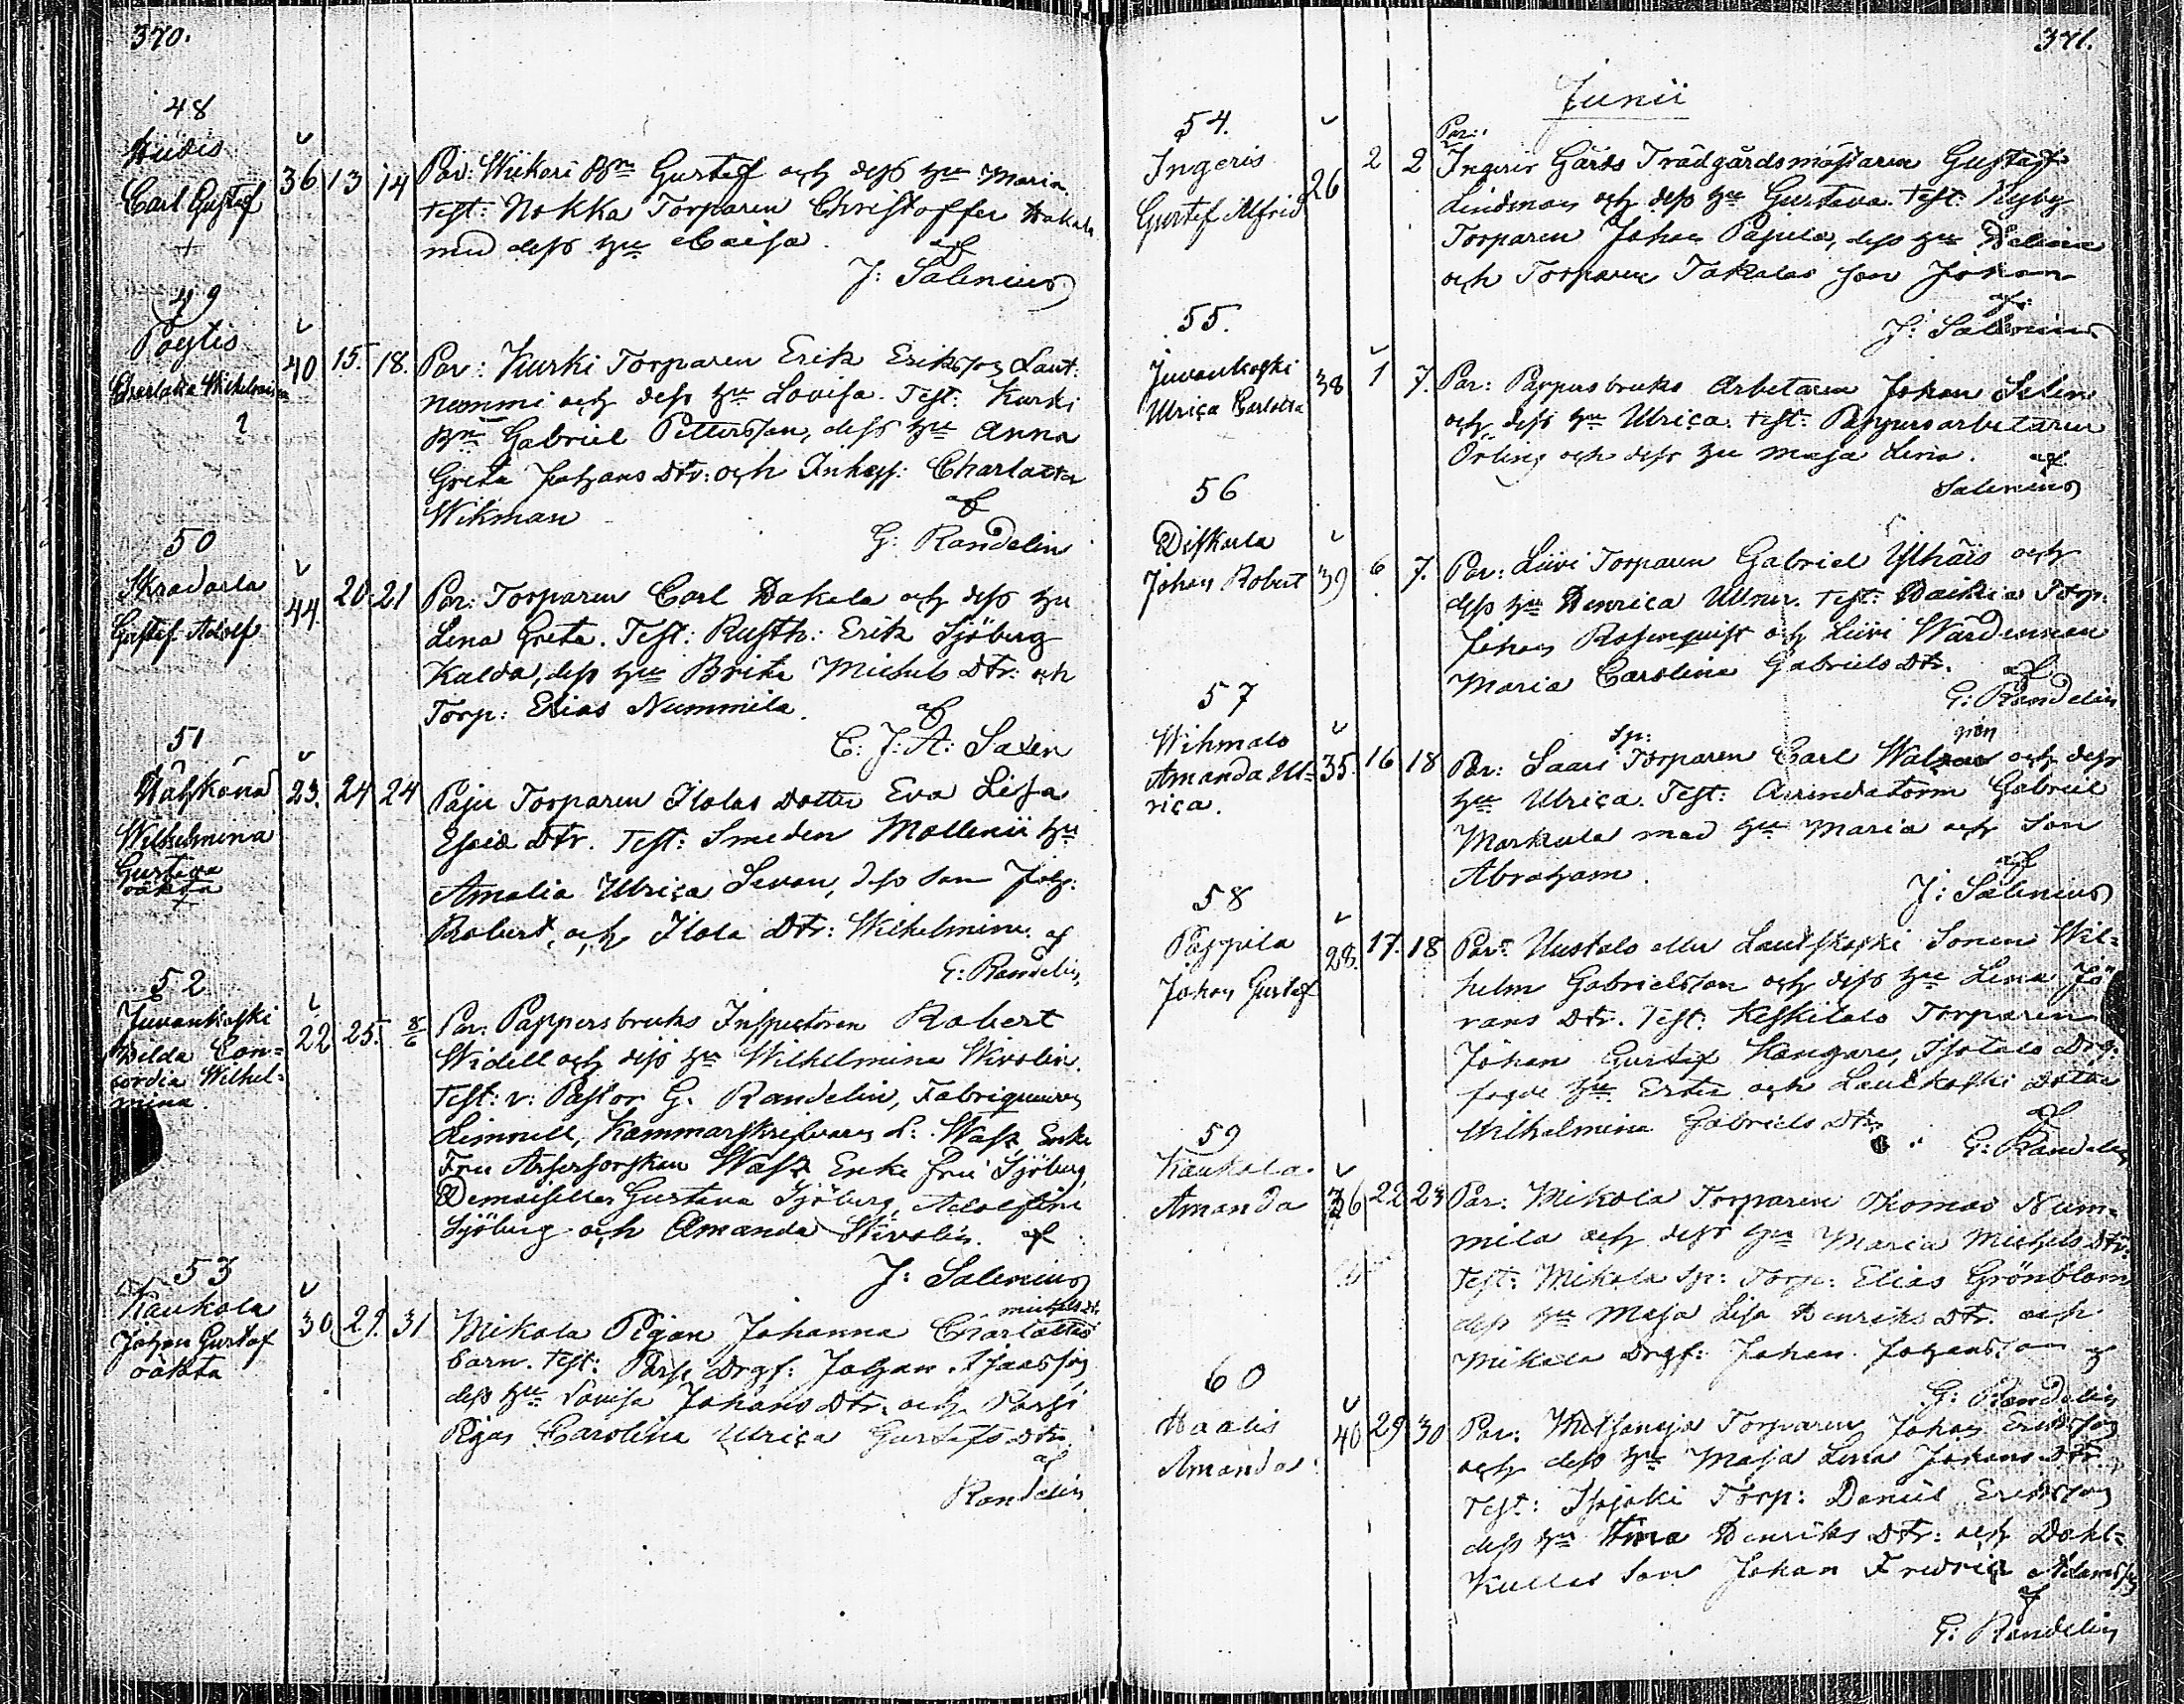 370.
48
Carl Gustaf
36 13 14
Par: Wiikari Bn Gustaf och dess hu Maria
test: Nokka Torparen Christoffer Hakala
med dess hu Caisa. af
J: Salenius
49
Pöytis
Charlotta Wilhelmina
40 15. 18.
Par: Kurki Torparen Erik Eriksson Laut:
nummi och dess hu Lovisa. Test: Kurki
Bn Gabriel Pettersson, dess hu Anna
Greta Johans Dtr: och Inhys: Charlotta
Wikman af
G: Randelin
50
Skradarla
Gustaf Adolf
44. 20. 21
Par: Torparen Carl Hakala och dess hu
Lena Greta. Test: Rusth: Erik Sjöberg
Kalda, dess hu Brita Michels Dtr: och
Torp: Elias Nummila. af
C: J: A: Saxen
51
Wilhelmina
Gustava
oäkta
23. 24 24
Paju Torparen Ilolas dotter Eva Lisa
Esaiæ dtr. Test: Smeden Mollenii hu
Amalia Ulrica Levon, dess son Joh:
Robert, och Ilola Dtr: Wilhelmina. af
G: Randelin
52
Juvankoski
Hilda Con=
cordia Wilhel=
mina
22 25. 8/6
Par: Pappersbruks Inspectoren Robert
Widell och dess hu Wilhelmina Wivolin.
Test: v: Pastor G. Randelin, Fabriqueuren
Limnell, Kammarskrifvaren L: Wass Enke
Fru Assessorskan Wass Enke fru Sjöberg,
Demoiseller Gustava Sjöberg, Adolfina
Sjöberg och Amanda Wivolin. af
J: Salenius
53
Kaukola
Johan Gustaf
oäkta
30 29. 31
Mikola Pigan Johanna Charlotta Michels dtr
barn. Test: Parsi Drgf: Johan Isaksson,
dess hu Lovisa Johans Dtr. och Parsi
Pigan Carolina Ulrica Gustafs Dtr
af
Randelin
371.
Junii
54.
Ingeris
Gustaf Alfrid
26 2 2
Par:
Ingeris Gårds Trädgårdsmästaren Gustaf
Lindman och dess hu Gustava. Test: Nyby
Torparen Johan Papula, dess hu Helena
och Torparen Takalas son Johan
af:
J: Salenius
55.
Juvankoski
Ulrica Carlotta
38 1 7.
Par: Pappersbruks Arbetaren Johan Selin
och dess hu Ulrica. test: Pappersarbetaren
Örling och dess hu Maja Lena. af
Salenius
56
Diskarla
Johan Robert
39 6 7.
Par: Liivi Torparen Gabriel Ylhäis och
dess hu Henrica Ullner. Test: Torp.
Johan Rosenquist och Liivi Wärdinnan
Maria Carolina Gabriels Dtr. af
G: Randelin
57
Wihmalo
Amanda Ul=
rica.
35. 16 18
Par: Saari Sp: Torparen Carl och dess
hu Ulrica. Test: Arrendatorn Gabriel
Markula med hu Maria och Son
Abraham. af
J: Salenius
58
Pappila
Johan Gustaf
28. 17. 18
Par: Uustalo eller Lautkoski Sonen Wil=
helm Gabrielsson och dess hu Lena Jö
rans Dtr. Test: Keskitalo Torparen
Johan Gustaf Kangare, Isotalo Drg.
fogde hu Ester och Lautkoski Dotter
Wilhelmina Gabriels Dtr. af
G: Randelin
59
Kaukola
Amanda
36 22 23
Par: Mikola Torparen Thomas Num=
mila och dess hu Maria Michels Dtr:
Test: Mikola Sp: Torp: Elias Grönblom
dess hu Maja Lisa Henriks Dtr. och
Mikola Drgf: Johan Johansson af
G: Randelin
60
Haalis
Amanda
40 29 30
Par: Torparen Johan Eriksson
och dess hu Maja Lena Johans Dtr.
Test: Isojoki Torp: Daniel Eriksson
dess hu Henriks Dtr: och Dahl=
kullas Son Johan Fredric Adamsson
af
G: Randelin